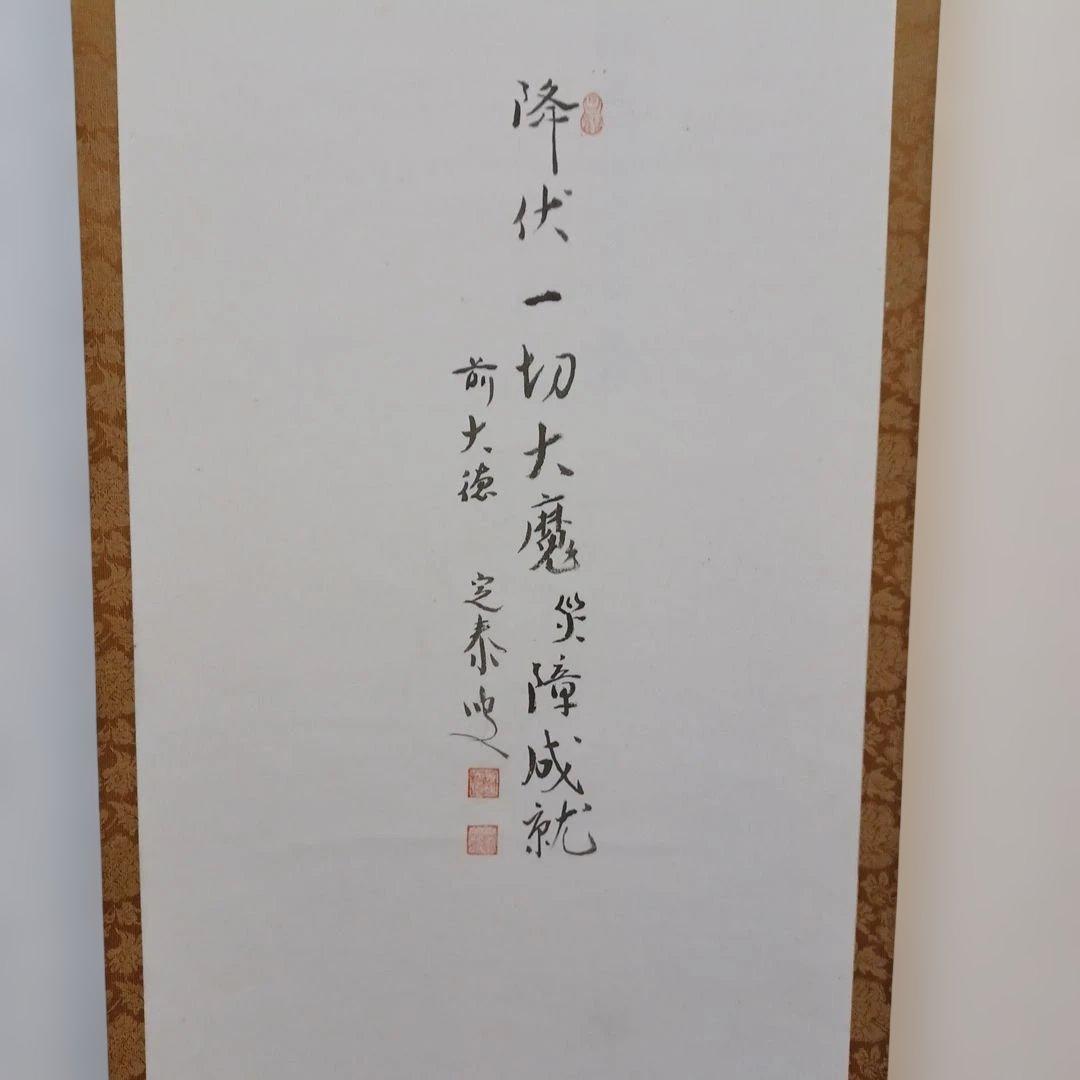 降伏一切大魔災障成就
前大徳 定泰叟